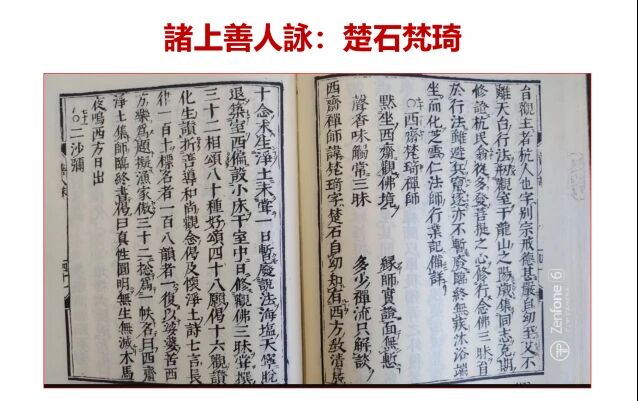 諸上善人詠：楚石梵琦
台觀主者杭人也字別宗戒德甚嚴自幼至艾不
離天台行法觀室于龍山之陽歲集同志克期
修證杭民翕從多發菩提之心修行念佛三昧自
於行法雖避兵竄逐亦不暫廢臨終無疾沐浴端
坐而化芝雲仁法師行業記備錄
〇西齋梵琦禪師
默坐西齋觀佛境 緣師實證面無慚
聲香味觸常三昧 多少禪流只解談
西齋禪師諱梵琦字楚石自幼知有西方教清晨
十念求生淨土未嘗一日暫廢說法海塩天寧脫
退築室西偏設小床于室中日修觀佛三昧嘗撰
三十二相頌八十種好頌四十八願偈十六觀讚
化生讚折善導和尚觀念偈及懷淨土詩七言長
律一百十標名者一百八韻者一復以婆婆苦西
方樂為題擬漁家傲三十二為一帙名曰西齋
淨土集師臨終書偈曰真性圓明無生無滅木馬
夜鳴西方日出
〇二沙彌
Zenfone 6